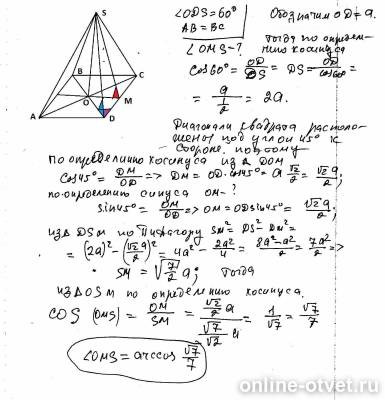 S
B
C
O
M
A
D
∠ODS = 60°
AB = BC
∠OMS - ?
Обозначим OD = a.
Тогда по определению косинуса
cos60° = OD/DS => DS = OD/cos60° =
= a/(1/2) = 2a.
Диагонали квадрата расположены под углом 45° к стороне, поэтому
по определению косинуса из Δ DOM
cos45° = DM/OD => DM = OD·cos45° = a √2/2 = √2a/2;
по определению синуса OM - ?
sin45° = OM/OD => OM = OD sin45° = √2a/2;
из Δ DSM по Пифагору SM² = DS² - DM² =
= (2a)² - (√2a/2)² = 4a² - 2a²/4 = 8a²-a²/2 = 7a²/2 =>
SM = √(7/2) a; тогда
из Δ OSM по определению косинуса.
COS (OMS) = OM/SM = (√2/2 a)/(√7/√2 a) = 1/√7 = √7/7
∠OMS = arccos √7/7
online-otvet.ru